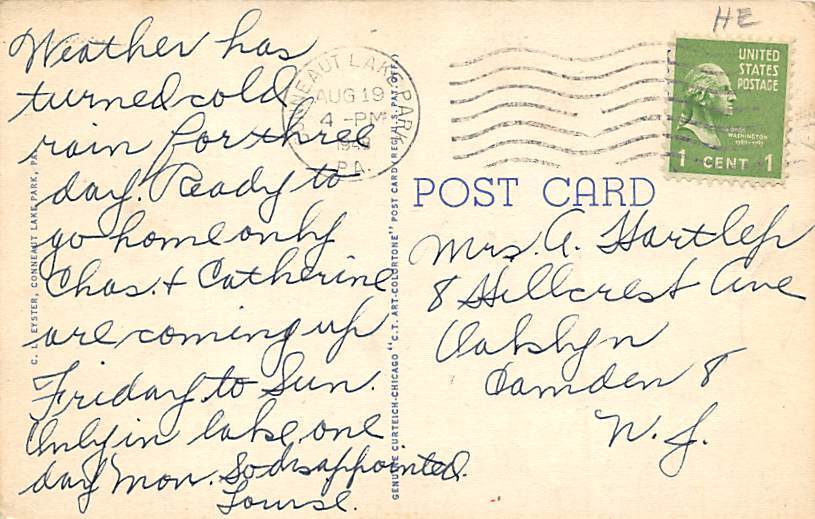 HE
Weather has
turned cold
rain for three
day. Ready to
go home only
Chas. + Catherine
are coming up
Friday to Sun.
Only in lake one
day Mon. So disappointed.
Louise.
C. L. EYSTER, CONNEAUT LAKE PARK, PA.
CONNEAUT LAKE PARK
AUG 19
4 -PM
PA.
GENUINE CURTEICH-CHICAGO "C.T. ART-COLORTONE" POST CARD (REG. U.S. PAT. OFF.)
UNITED
STATES
POSTAGE
WASHINGTON
1 CENT 1
POST CARD
Mrs. A. Hartlep
8 Hillcrest Ave
Oaklyn
Camden 8
N. J.